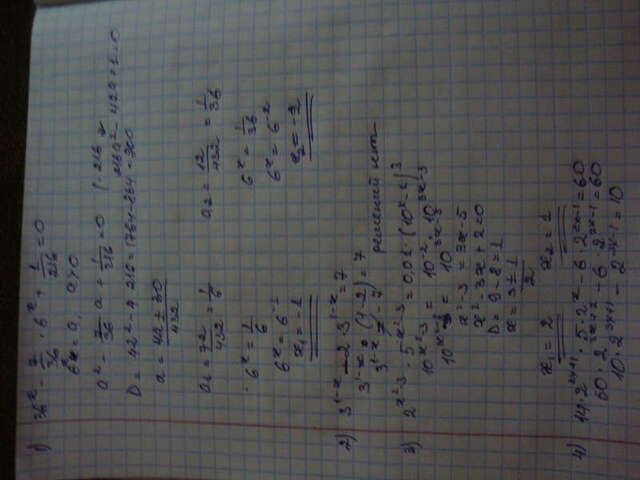 1) 36^x - 7/36 · 6^x + 1/216 = 0
6^x = a, a>0
a² - 7/36 a + 1/216 = 0 | · 216
216a² - 42a + 1 = 0
D = 42² - 4 · 216 = 1764 - 864 = 900
a = (42 ± 30)/432
a₁ = 72/432 = 1/6 a₂ = 12/432 = 1/36
6^x = 1/6 6^x = 1/36
6^x = 6^-1 6^x = 6^-2
x₁ = -1 x₂ = -2
2) 3^(1-x) - 2 · 3^(1-x) = 7
3^(1-x) · (1-2) = 7
3^(1-x) = -7 решений нет
3) 2^(x²-3) · 5^(x²-3) = 0,01 · (10^(x-1))³
10^(x²-3) = 10^-2 · 10^(3x-3)
10^(x²-3) = 10^(3x-5)
x² - 3 = 3x - 5
x² - 3x + 2 = 0
D = 9 - 8 = 1
x = (3 ± 1)/2
x₁ = 2 x₂ = 1
4) · 5 · 2^x - 6 · 2^(2x-1) = 60
- 6 · 2^(2x-1) = 60
= 10